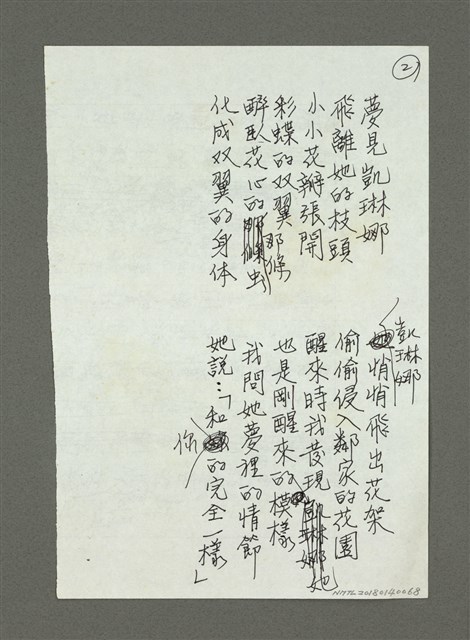 ②
夢見凱琳娜
飛離她的枝頭
小小花瓣張開
彩蝶的双翼那條
醉臥花心的虫
化成双翼的身体
凱琳娜
悄悄飛出花架
偷偷侵入鄰家的花園
醒來時我發現凱琳娜她
也是剛醒來的模樣
我問她夢裡的情節
她說:「和你的完全一樣」
NMTL20180140068